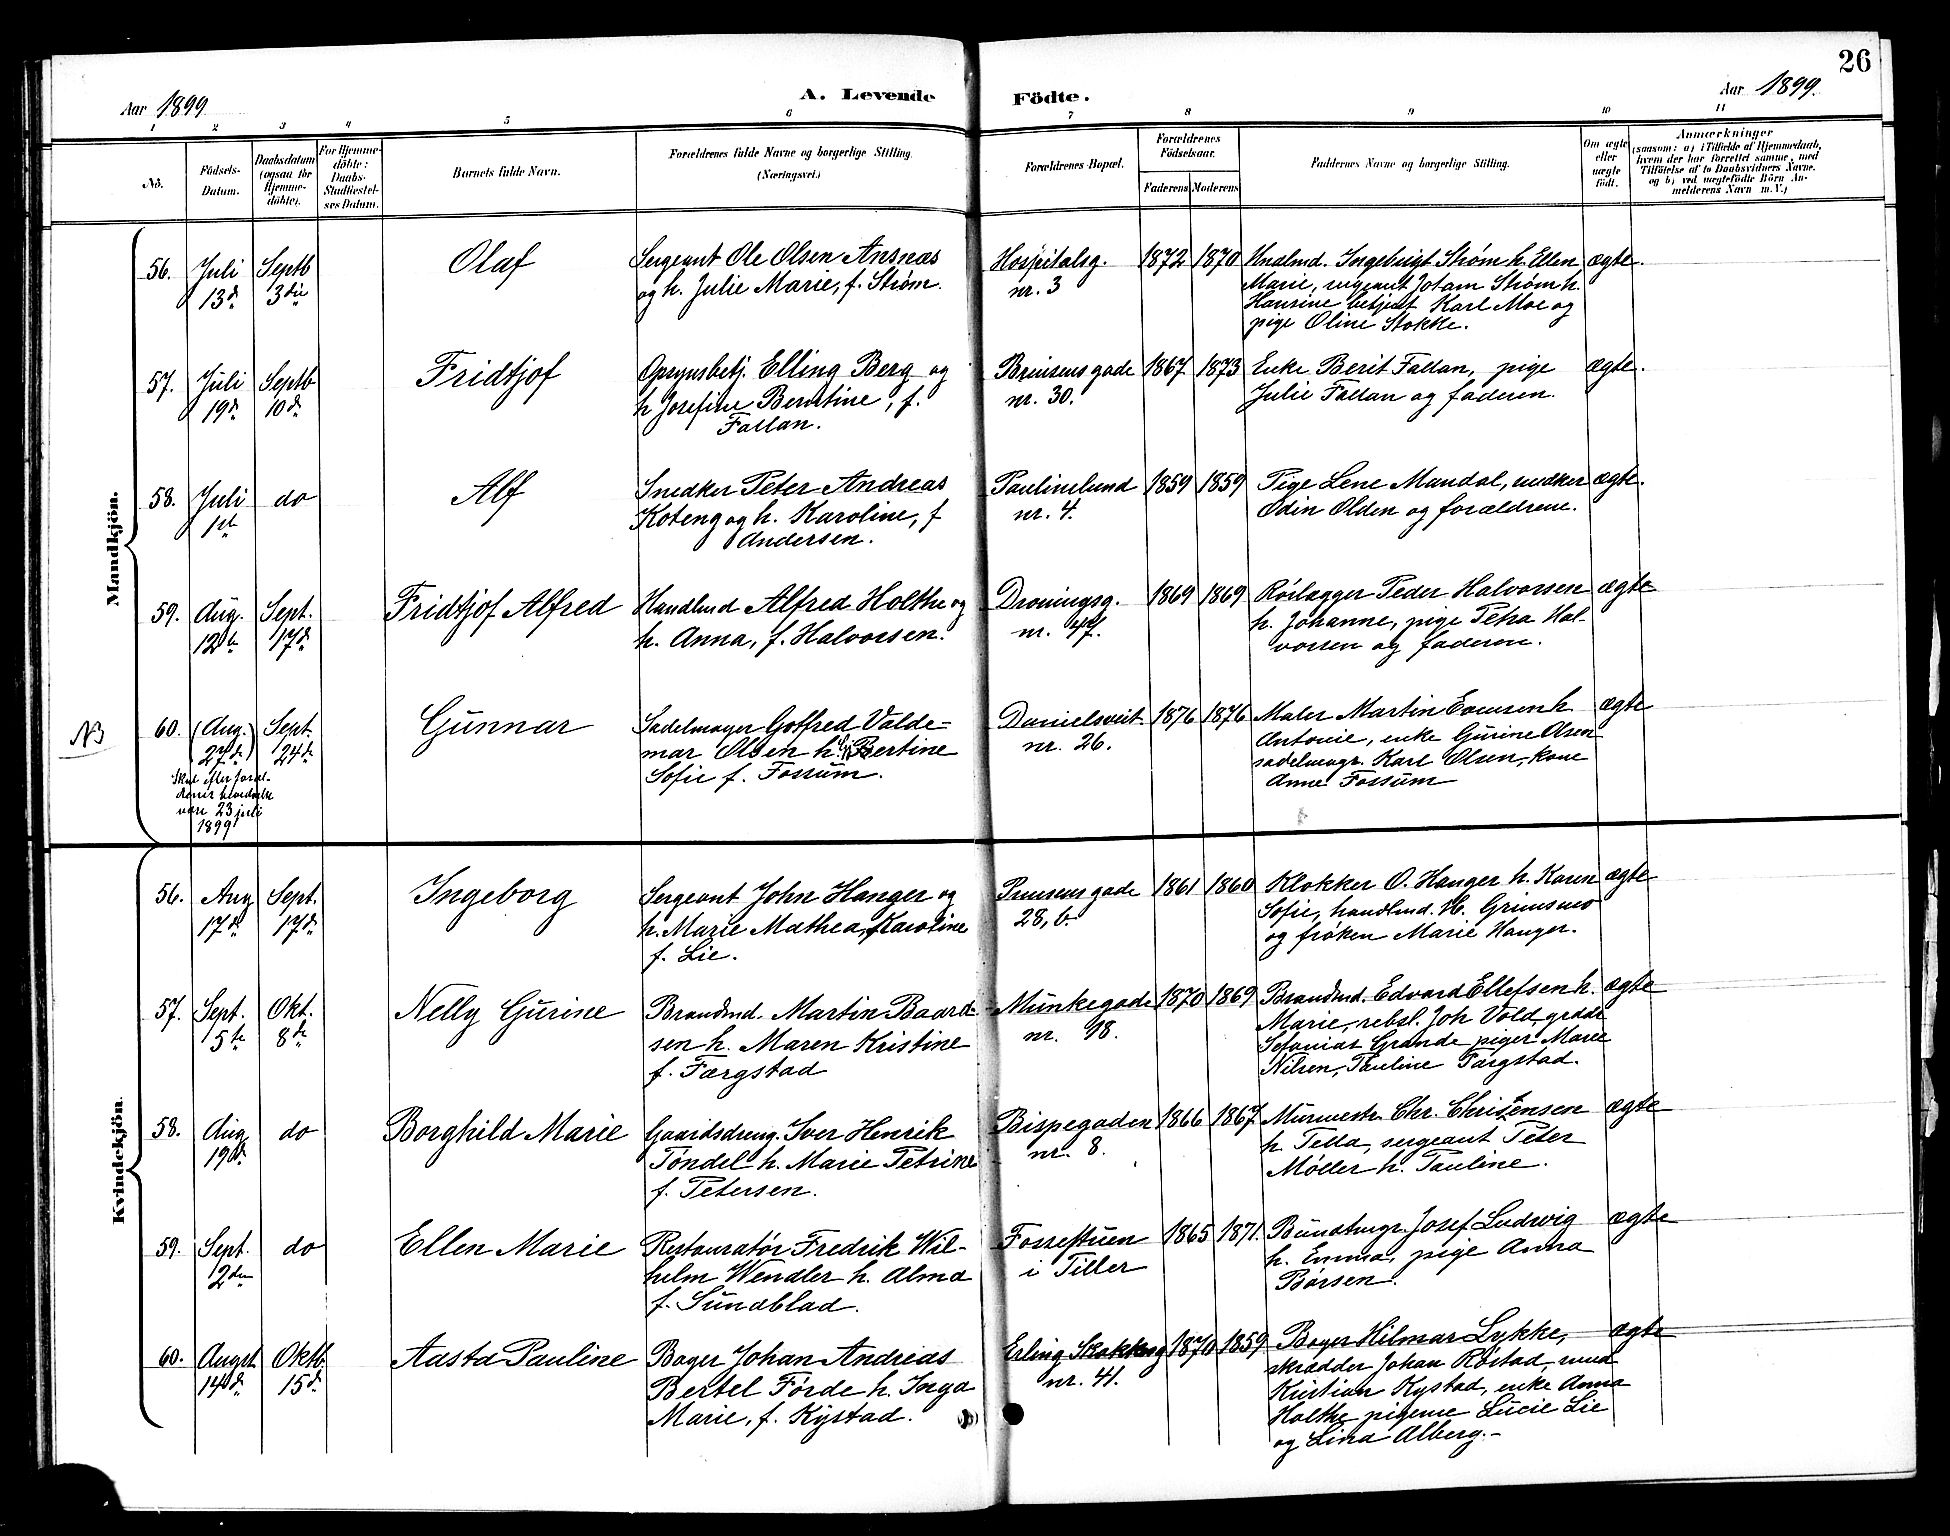 26
Aar 1899
A. Levende Födte.
Aar 1899.
1 2 3 4 5 6 7 8 9 10 11
No.
Födsels-
Datum.
Daabsdatum
(ogsaa for
Hjemme-
döbte).
For Hjemme-
döbte:
Daabs-
Stadfæstel-
ses Datum.
Barnets fulde Navn.
Forældrenes fulde Navne og borgerlige Stilling.
(Næringsvei.)
Forældrenes Bopæl.
Forældrenes
Födselsaar.
Faderens Moderens
Faddernes Navne og borgerlige Stilling.
Om ægte
eller
uægte
födt.
Anmærkninger
(saasom: a) i Tilfælde af Hjemmedaab,
hvem der har forrettet samme, med
Tilföielse af to Daabsvidners Navne.
og b) ved uægtefödte Börn An-
melderens Navn m. V.)
Mandkjön.
56. Juli 13de Septb 3die Olaf
Sergeant Ole Olsen Ansnæs
og h. Julie Marie, f. Strøm.
Hospitalsg.
nr. 3
1872 1870
Hndlmd. Ingebrigt Strøm h. Ellen
Marie, sergeant Jotam Strøm h.
Hansine betjent Karl Moe og
pige Oline Stokke.
ægte.
57. Juli 19de Septb 10de Fridtjof
Opsynsbetj. Elling Berg og
h Josefine Berntine, f.
Fallan.
Brinsens gade
nr. 30.
1867 1873
Enke Berit Fallan, pige
Julie Fallan og faderen.
ægte.
58. Juli 1ste do Alf
Snedker Peter Andreas
Koteng og h. Karoline, f
Andersen.
Paulinelund
nr. 4.
1859 1859
Pige Lene Mandal, snedker
Odin Olden og forældrene.
ægte.
59. Aug. 12te Sept. 17de Fridtjof Alfred
Handlmd Alfred Holthe og
h. Anna, f. Halvorsen.
Droningsg.
nr. 47.
1869 1869
Rörlægger Peder Halvorsen
h. Johanne, pige Petra Hal-
vorsen og faderen.
ægte
NB
60. (Aug. 27de) Sept. 24de Gunnar
Skal efter foræl-
drenes
være 23 juli
1899
Sadelmager Gotfred Valde-
mar Olsen h. Bertine
Sofie f. Fossum.
Danielsveit
nr. 26.
1876 1876
Maler Martin Evensen h
Antonie, enke Gurine Olsen
sadelmagr. Karl Olsen, kone
Anne Fossum
ægte
Kvindekjön.
56. Aug 17de Sept. 17de Ingeborg
Sergeant John Hanger og
h. Marie Mathea, Karoline
f. Lie.
Prinsens gade
28, b.
1861 1860
Klokker O. Hanger h. Karen
Sofie, handlmd. H. Grimsmo
og frøken Marie Hanger.
ægte
57. Sept. 5te Okt. 8de Nelly Gurine
Brandmd. Martin Baard-
sen h. Maren Kristine
f. Færgstad
Munkegade
nr. 18.
1870 1869
Brandmd. Edvard Ellefsen h.
Marie, rebsl. Joh Vold,
Sefanias Grande piger Marie
Nilsen, Pauline Færgstad.
ægte
58. Aug 19de do Borghild Marie
Gaardsdreng. Iver Henrik
Töndel h. Marie Petrine
f. Petersen.
Bispegaden
nr. 8.
1866 1867
Murmestr. Chr. Christensen
h. Tella, sergeant Peter
Møller h. Pauline.
ægte
59. Sept. 2den do Ellen Marie
Restauratør Fredrik Wil-
helm Wendler h. Alma
f. Sundblad.
Fossestuen
i Tiller
1865 1871.
Bundtmgr. Josef Ludwig
h. Emma, pige Anna
Børsen.
ægte
60. Augst. 14de Oktb 15de Aasta Pauline
Bager Johan Andreas
Bertel Förde h. Inga
Marie, f. Kystad.
Erling Skakkesg
nr. 41.
1870 1859
Bager Hilmar Lykke,
skrædder Johan Røstad,
Kristian Kystad, enke Anna
Holthe pigerne Lucie Lie
og Lina Alberg.-
ægte